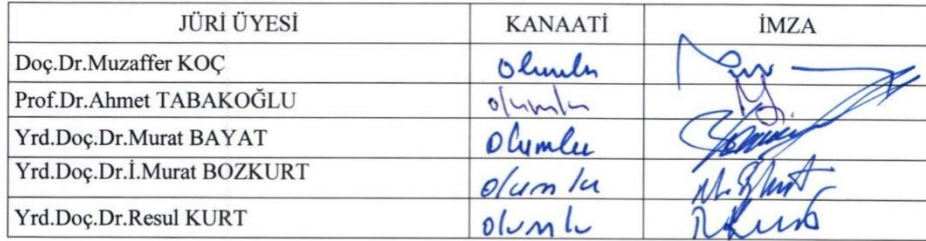 JÜRİ ÜYESİ KANAATİ İMZA
Doç.Dr.Muzaffer KOÇ olumlu
Prof.Dr.Ahmet TABAKOĞLU olumlu
Yrd.Doç.Dr.Murat BAYAT olumlu
Yrd.Doç.Dr.İ.Murat BOZKURT olumlu
Yrd.Doç.Dr.Resul KURT olumlu RKurt